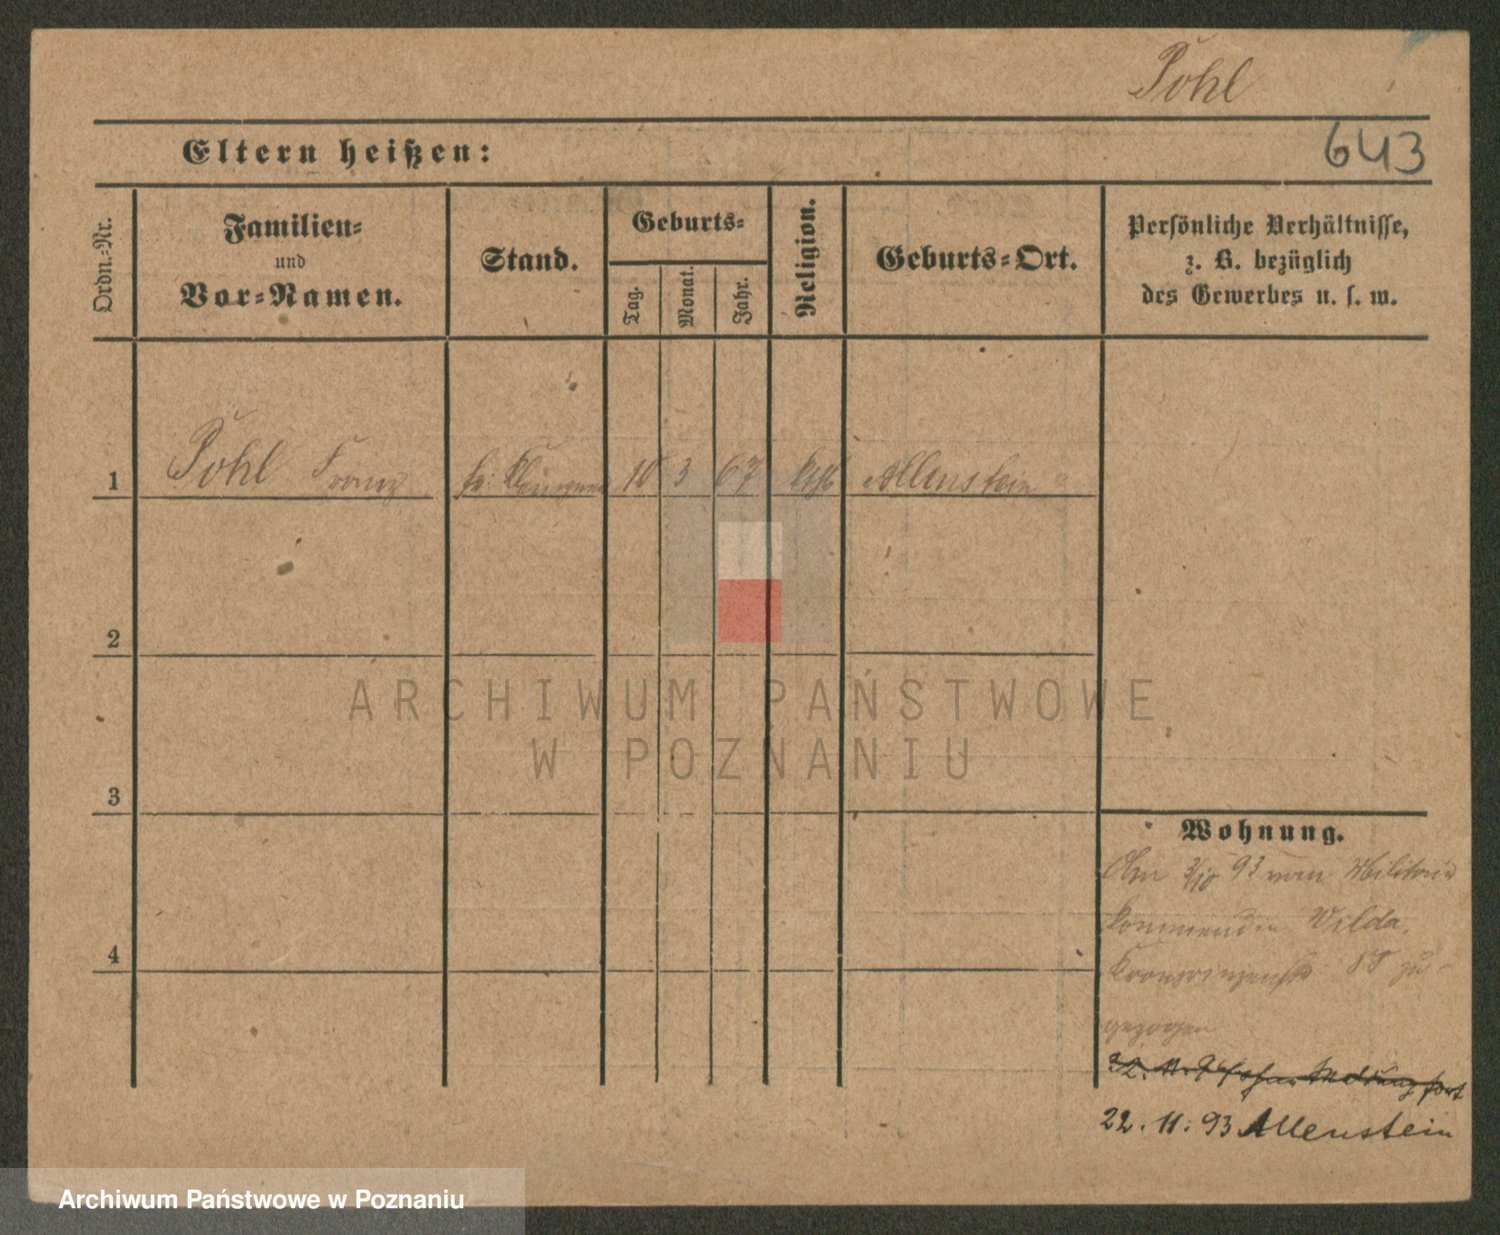 Pohl
Eltern heißen:
643
Ordn.-Nr.
Familien-
und
Vor-Namen.
Stand.
Geburts-
Tag.
Monat.
Jahr.
Religion.
Geburts-Ort.
Persönliche Verhältnisse,
z. B. bezüglich
des Gewerbes u. s. w.
1 Pohl Franz 10 3 67 kath Allenstein
2
3
4
ARCHIWUM PAŃSTWOWE
W POZNANIU
Wohnung.
3/10 93 vom Militair
kommend in Wilda,
Kronprinzenstr zu-
gezogen
22. 11. ohne Meldung fort
22. 11. 93 Allenstein
Archiwum Państwowe w Poznaniu